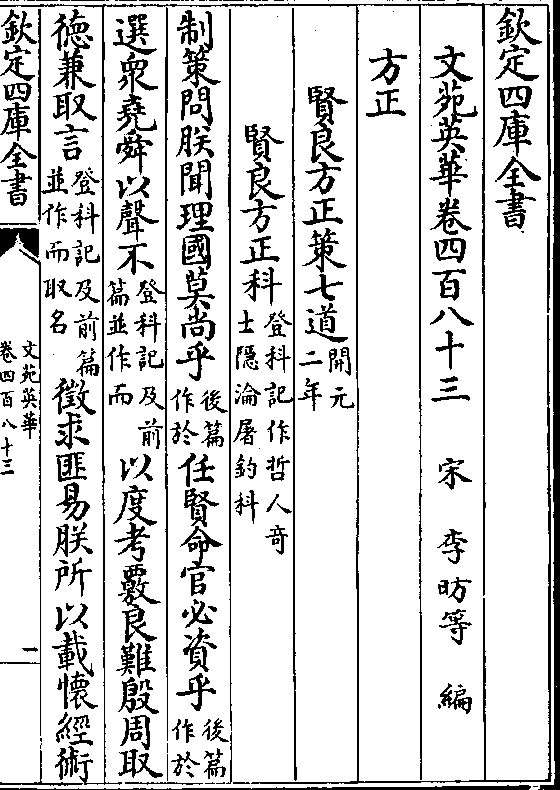 欽定四庫全書
文苑英華卷四百八十三　宋　李昉等　編
方正
賢良方正策七道開元二年
賢良方正科登科記作哲人奇士隱淪屠釣科
制策問朕聞理國莫尚乎後篇作於任賢命官必資乎後篇作於
選衆堯舜以聲不登科記及前篇並作而以度考覈良難殷周取
徳兼取言登科記及前篇並作而取名徵求匪易朕所以載懷經術
欽定四庫全書
文苑英華
卷四百八十三
一